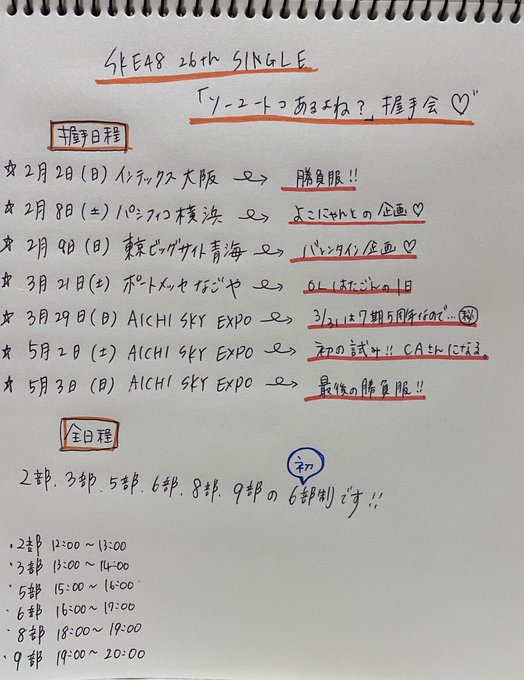 SKE48 26th SINGLE
「ソーユートコあるよね?」握手会♡"
握手日程
☆2月2日(日)インテックス大阪→勝負服!!
☆2月8日(土)パシフィコ横浜→よこにゃんとの企画♡
☆2月9日(日)東京ビッグサイト青海→バレンタイン企画♡
☆3月21日(土)ポートメッセなごや→OLはたごんの1日
☆3月29日(日)AICHI SKY EXPO→3/31は7期5周年なので…㊙
☆5月2日(土)AICHI SKY EXPO→初の試み!!CAさんになる。
☆5月3日(日)AICHI SKY EXPO→最後の勝負服!!
全日程
初
2部、3部、5部、6部、8部、9部の6部制です!!
・2部 12:00~13:00
・3部 13:00~14:00
・5部 15:00~16:00
・6部 16:00~17:00
・8部 18:00~19:00
・9部 19:00~20:00